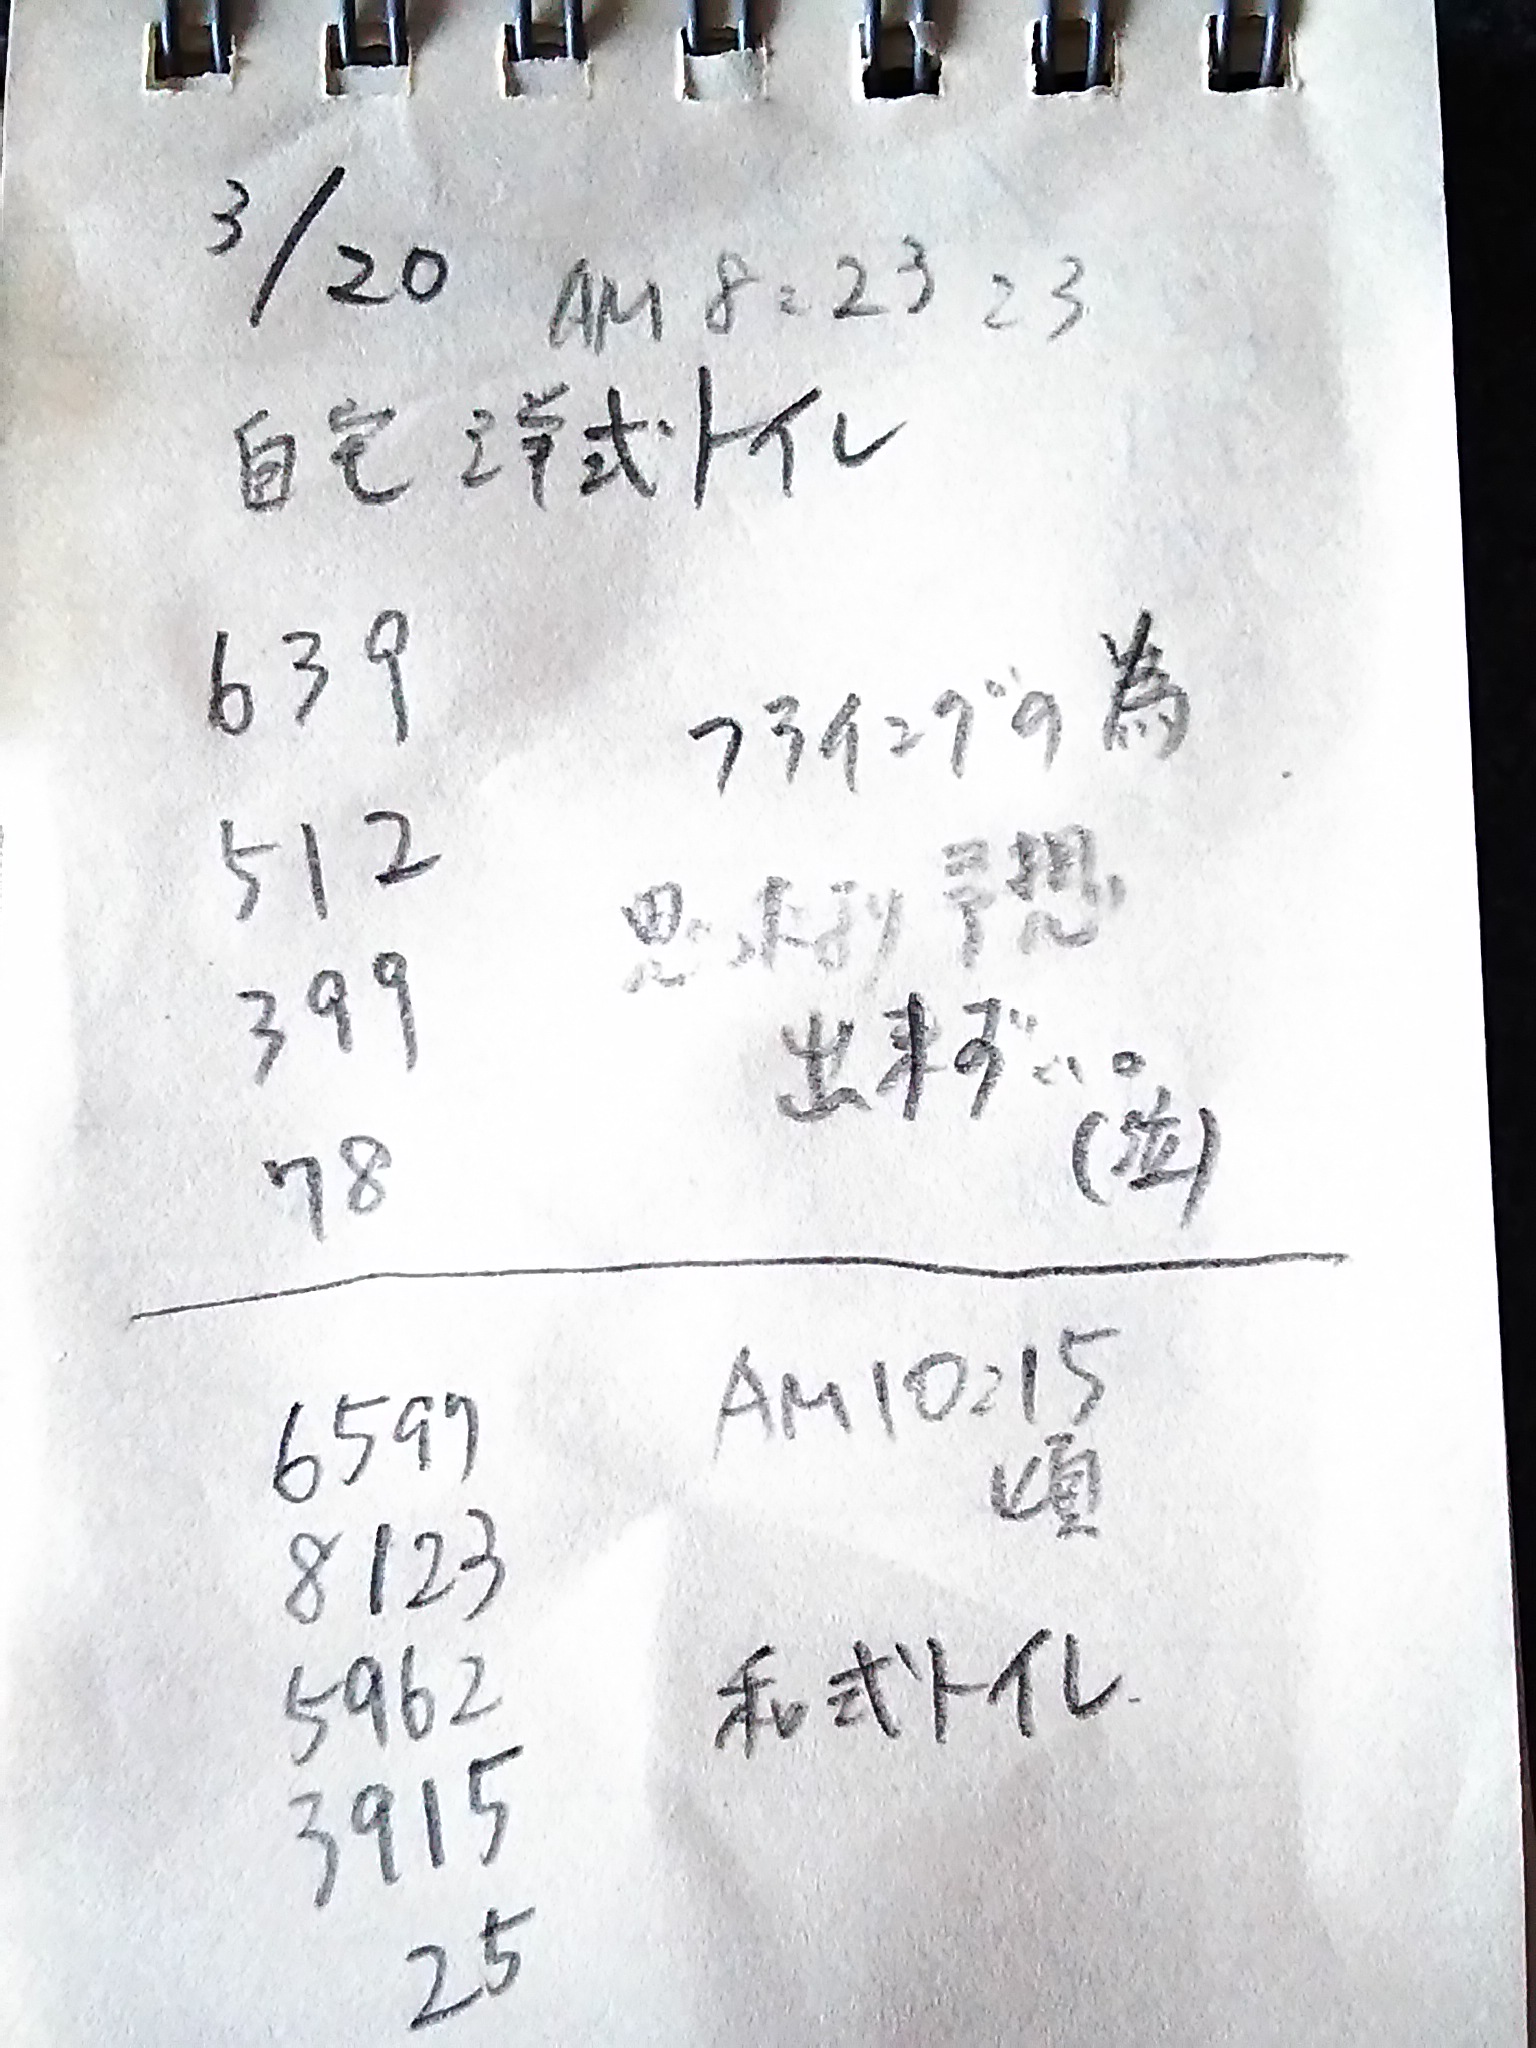 3/20 AM 8:23:3
自宅 洋式トイレ
639
フライングの為
512
思った通り予想
399
出来ず…。
(泣)
78
6597
AM10:15
頃
8123
5962
和式トイレ
3915
25